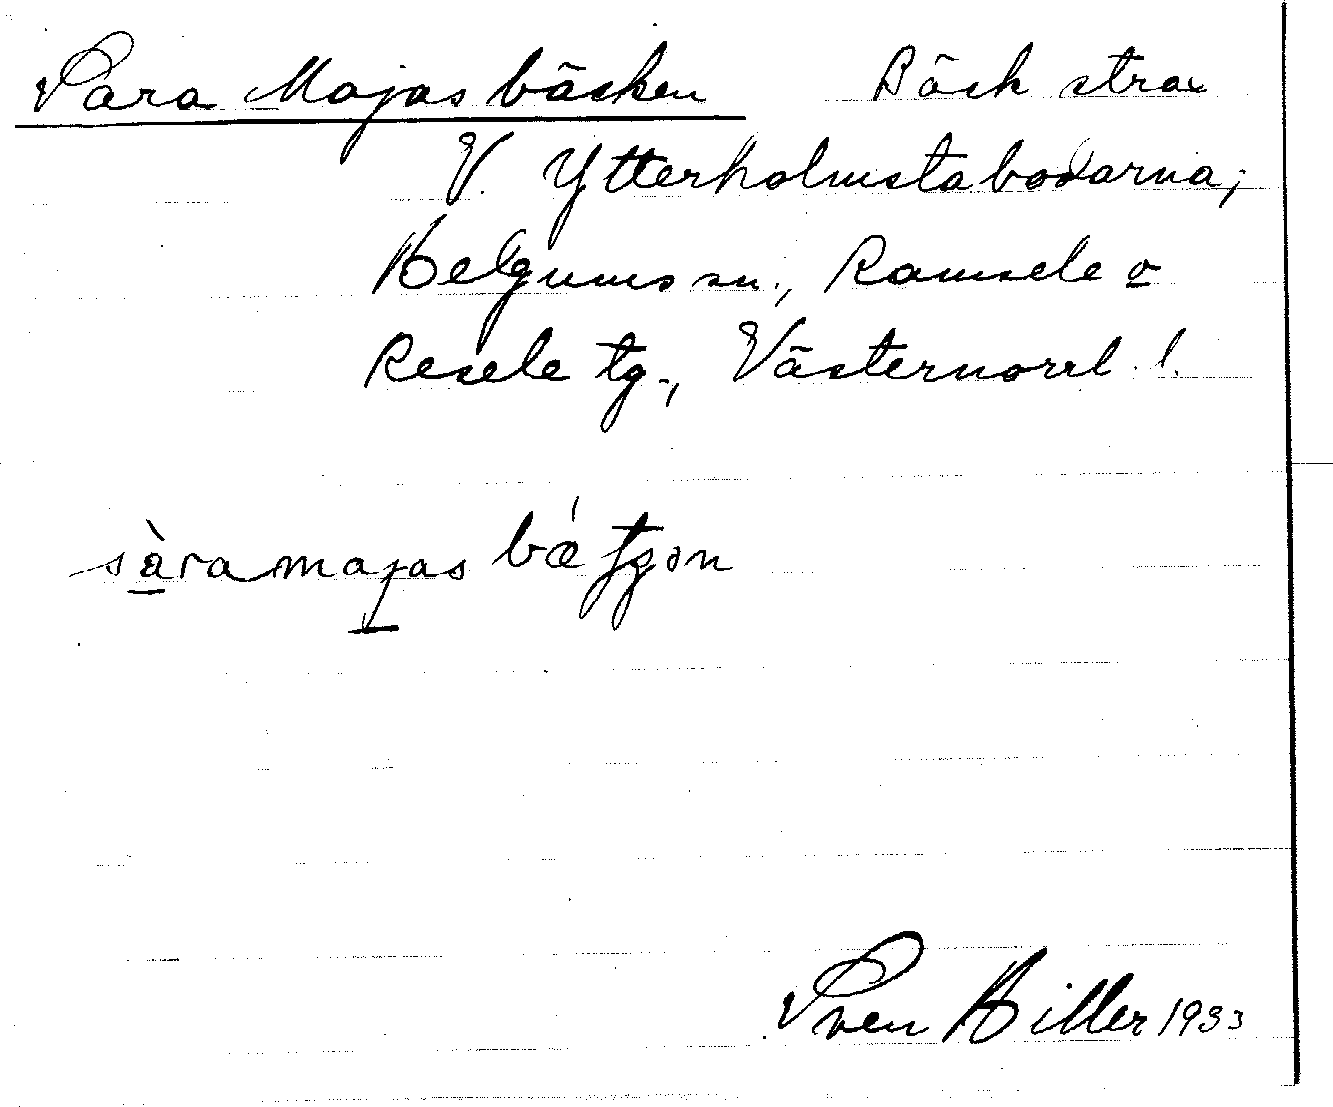 Sara Majas bäcken Bäck strax
V. Ytterholmstabodarna;
Helgums sn., Ramsele o
Resele tg., Västernorrl. l.
sàra majas bǽtjən
Sven Hiller 1933